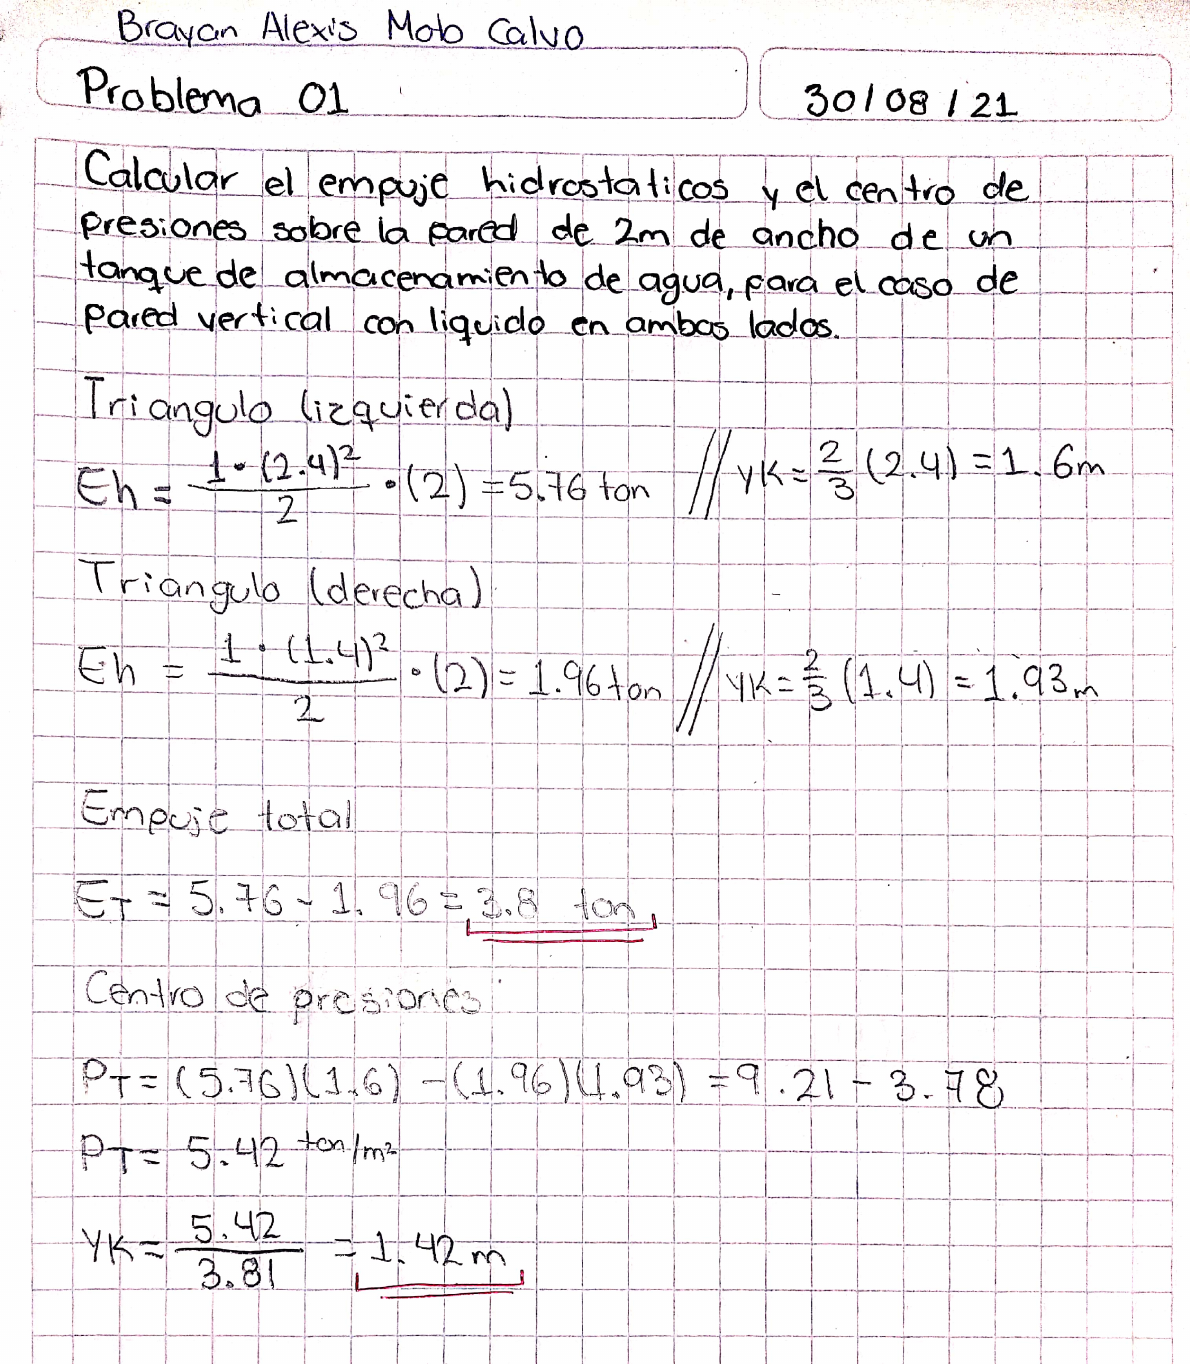 Brayan Alexis Mob Calvo
Problema 01
30/08/21
Calcular el empuje hidrostaticos y el centro de
presiones sobre la pared de 2m de ancho de un
tanque de almacenamiento de agua, para el caso de
pared vertical con liquido en ambos lados.
Triangulo (izquierda)
Eh = 1·(2.4)²/2 ·(2) = 5.76 ton // YK = 2/3 (2.4) = 1.6m
Triangulo (derecha)
Eh = 1·(1.4)²/2 ·(2) = 1.96 ton // YK = 2/3 (1.4) = 1.93m
Empuje total
ET = 5.76 - 1.96 = 3.8 ton
Centro de presiones
PT = (5.76)(1.6) - (1.96)(1.93) = 9.21 - 3.78
PT = 5.42 ton/m²
YK = 5.42/3.81 = 1.42m